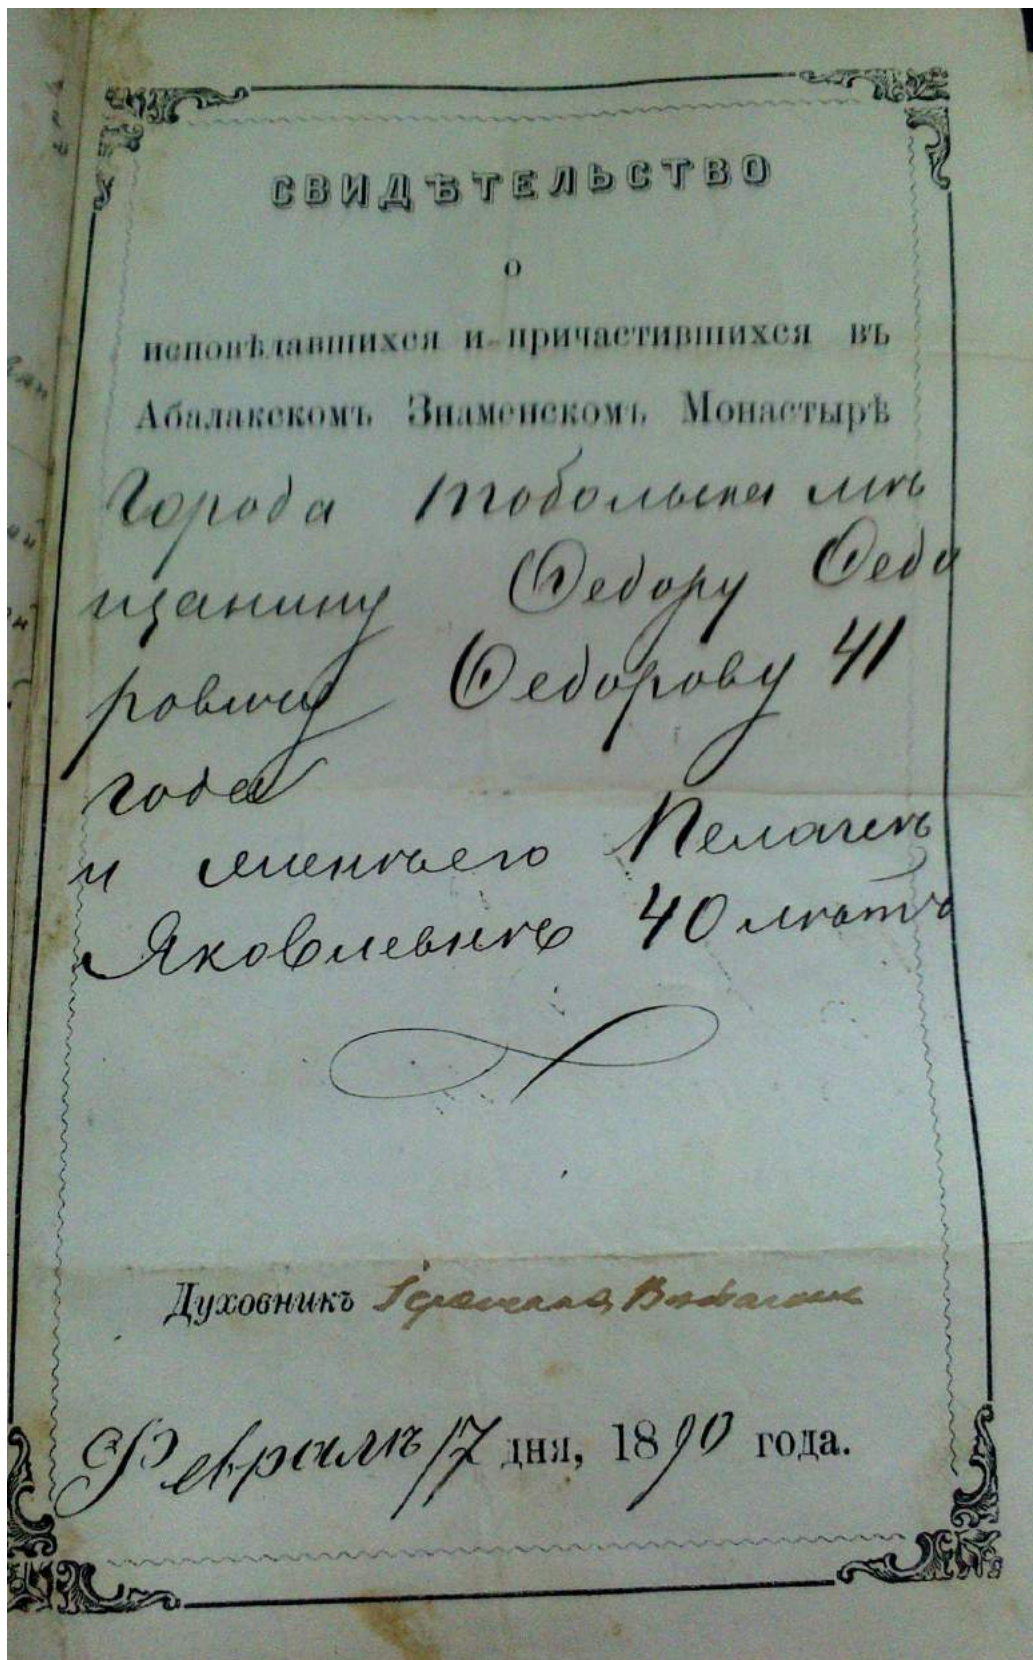 СВИДѢТЕЛЬСТВО
о
исповѣдавшихся и причастившихся въ
Абалакскомъ Знаменскомъ Монастырѣ
Города Тобольска мѣ
щанину Ѳедору Ѳедо
ровичу Ѳедорову 41
года
и женѣ его Пелагеѣ
Яковлевнѣ 40 лѣтъ
Духовникъ
Февраля 17 дня, 1890 года.